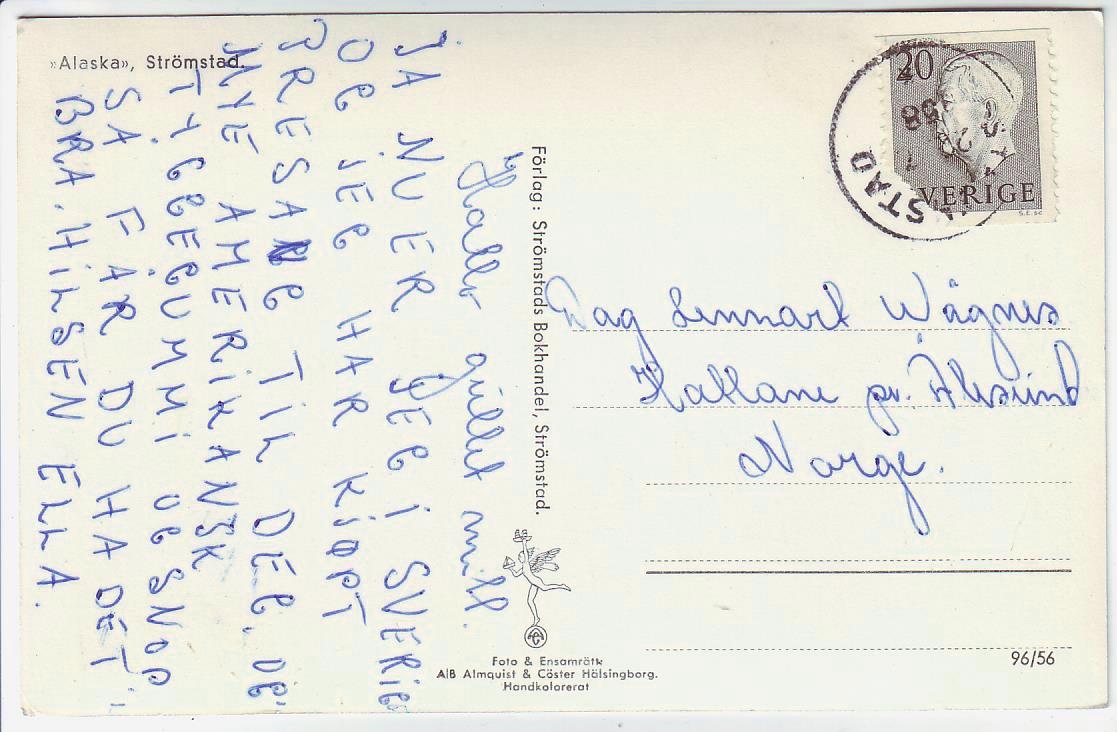 »Alaska», Strömstad.
Hallo gullet mitt.
JA NU ER JEG I SVERIGE
OG JEG HAR KJØPT
PRESANG TIL DEG. OG
MYE AMERIKANSK
TYGGEGUMMI OG SNOP
SÅ FÅR DU HA DET
BRA. HILSEN ELLA.
Förlag: Strömstads Bokhandel, Strömstad.
Foto & Ensamrätt
A|B Almquist & Cöster Hälsingborg.
Handkolorerat
20
SVERIGE
S.E. sc
STAD
58
Dag Lennart Wågnes
Hatlane pr. Ålesund
Norge.
96/56